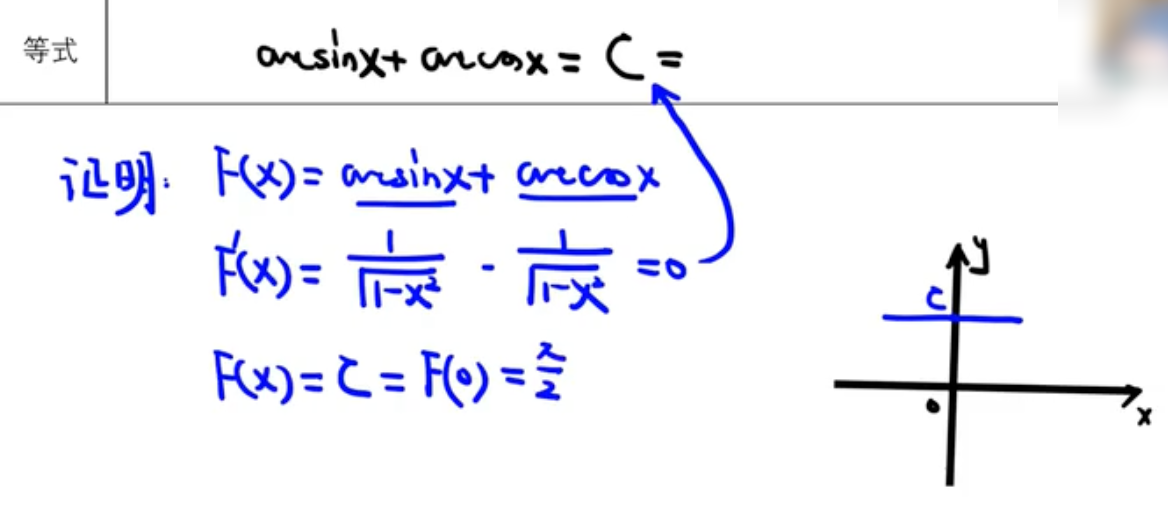 等式
arcsinx + arccosx = C =
证明: F(x) = arcsinx + arccosx
F'(x) = 1/√(1-x²) - 1/√(1-x²) = 0
F(x) = C = F(0) = π/2
y
C
0
x